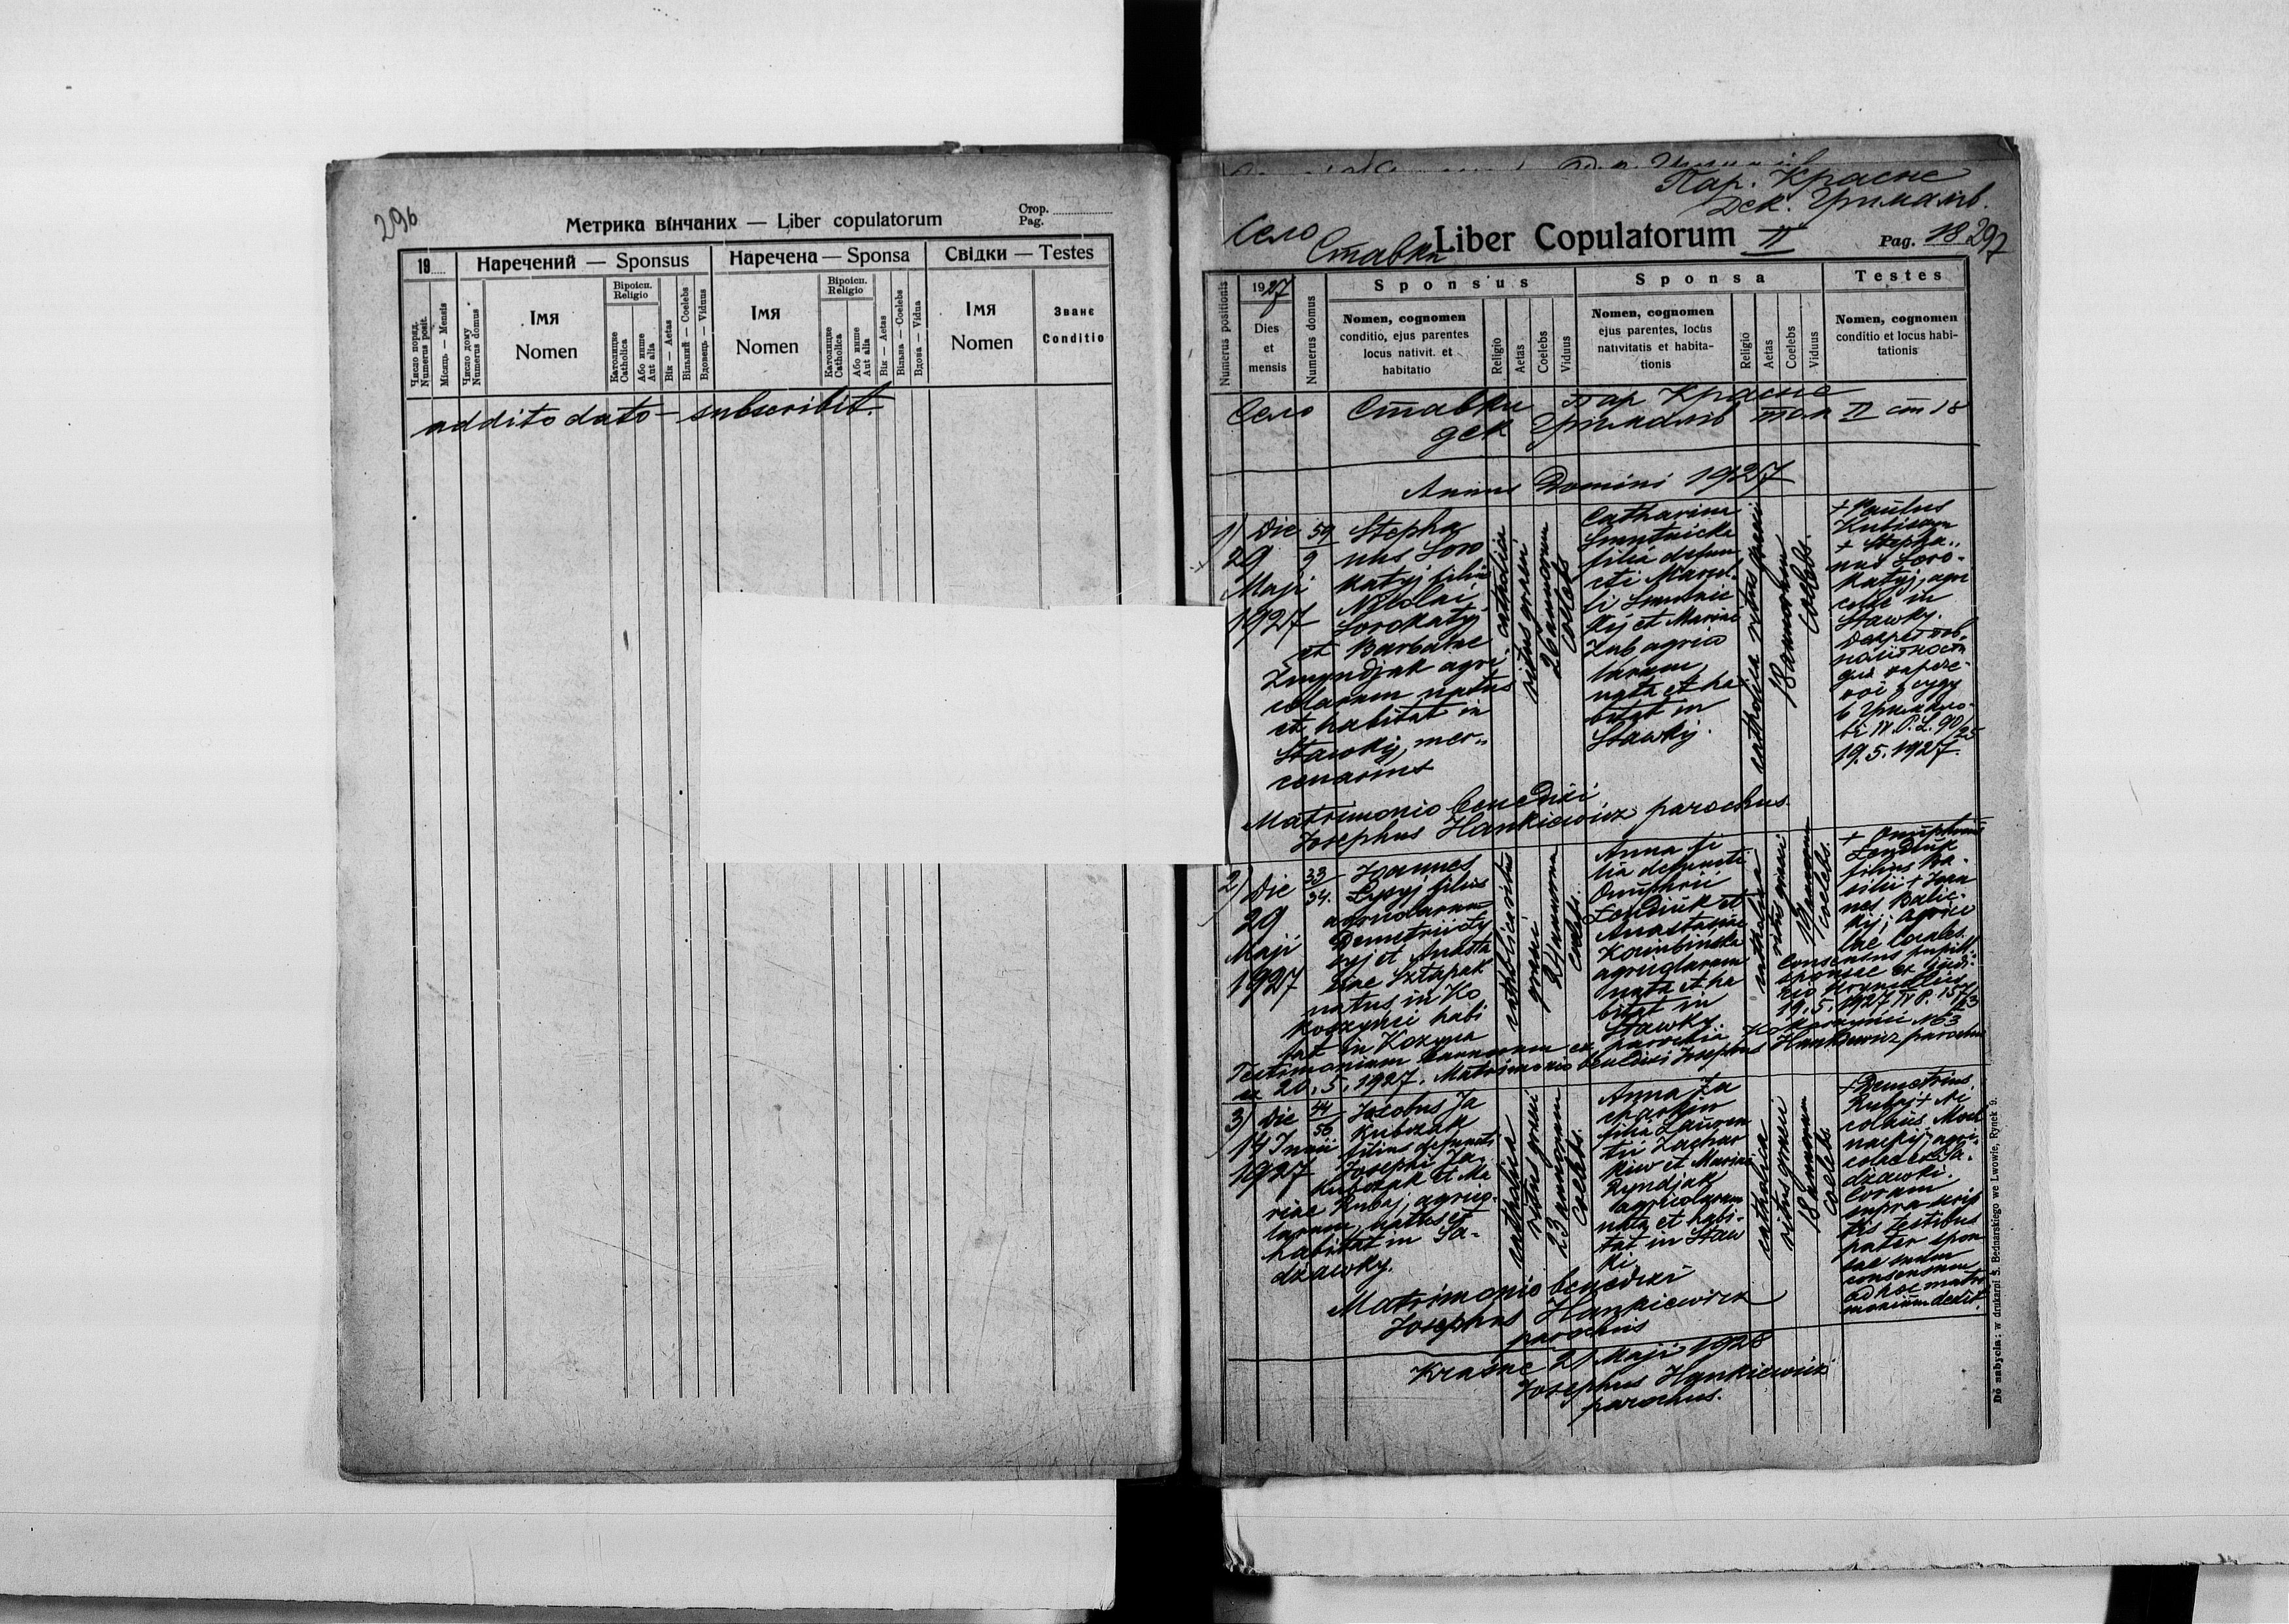 296
Метрика вінчаних — Liber copulatorum
Стор.
Pag.
19
Наречений — Sponsus
Наречена — Sponsa
Свідки — Testes
Число поряд.
Numerus posit.
Місяць — Mensis
Число дому
Numerus domus
Імя
Nomen
Віроісп.
Religio
Католицке
Catholica
Або инше
Aut alia
Вік — Aetas
Вільний — Coelebs
Вдовець — Viduus
Імя
Nomen
Віроісп.
Religio
Католицке
Catholica
Або инше
Aut alia
Вік — Aetas
Вільна — Coelebs
Вдова — Vidua
Імя
Nomen
Званє
Conditio
addito dato — subscribit.
Пар. Красне
Дек. Грималів.
Село
Ставки
Liber Copulatorum II
Pag. 18
297
Numerus positionis
1927
Dies
et
mensis
Numerus domus
Sponsus
Nomen, cognomen
conditio, ejus parentes
locus nativit. et
habitatio
Religio
Aetas
Coelebs
Viduus
Sponsa
Nomen, cognomen
ejus parentes, locus
nativitatis et habita-
tionis
Religio
Aetas
Coelebs
Viduus
Testes
Nomen, cognomen
conditio et locus habi-
tationis
Село Ставки Пар Красне
дек Грималів том II стр 18
Annus Domini 1927
1)
Die
29
Maji
1927
59
9
Stepha
nus Soro
katyj filius
Nikolai
Sorokatyj
et Barbarae
agri-
colarum natus
et habitat in
Stawky, mer-
cenarius
catholica
ritus graeci
26 annorum
coelebs
Catharina
Smutnicka
filia defun-
cti Marcel-
li Smutnic
kij et Mariae
Zub agrico
larum,
nata et ha
bitat in
Stawky.
catholica ritus graeci
18 annorum
coelebs.
+ Paulus
+ Stepha-
nus Soro-
katyj, agri
colae in
Stawky.
19.5.1927.
Matrimonio benedixi
Josephus Hankiewicz parochus.
2)
Die
29
Maji
1927
33
34.
Joannes
Lysyj filius
agricolarum
Demetrii Ły
syj et Anasta
siae Sztapak
natus in Ko
koszynci habi
tat in Kozyna
catholica ritus
graeci
24 annorum
coelebs.
Anna fi
lia defuncti
Onuphrii
Łendiuk et
Anastasiae
agricolarum
nata et ha
bitat in
Stawky.
catholica
ritus graeci
coelebs.
+ Onuphrius
Łendiuk
filius Ba-
silii + Joan
nes Balic-
kij, agrico
lae locales.
Consensus pupill.
sponsae ex judi-
19.5.1927
Testimonium bannorum ex parochia Kokoszynci N 63
ex 20.5.1927. Matrimonio benedixi Josephus Hankiewicz parochus
3)
Die
14 Junii
1927
44
56
Jacobus Ja
kubczak
filius defuncti
Josephi Ja
kubczak et Ma
riae Rubaj, agrico-
larum, natus et
habitat in Sa-
dzawky.
catholica
ritus graeci
23 annorum
coelebs.
Anna Za
charkiw
filia Lauren
tii Zachar
kiw et Mariae
Ryndjak
agricolarum
nata et habi-
tat in Staw
ki.
catholica
ritus graeci
18 annorum
coelebs.
+ Demetrius
Rubaj + Ni
colaus Moch
nackij, agri-
colae ex Sa-
dzawki.
Coram
supra scrip
tis testibus
pater spon
sae suum
consensum
ad hoc matri
monium dedit.
Matrimonio benedixi
Josephus Hankiewicz
parochus
Krasne 21 Maji 1928
Josephus Hankiewicz
parochus.
Do nabycia: w drukarni S. Bednarskiego we Lwowie, Rynek 9.